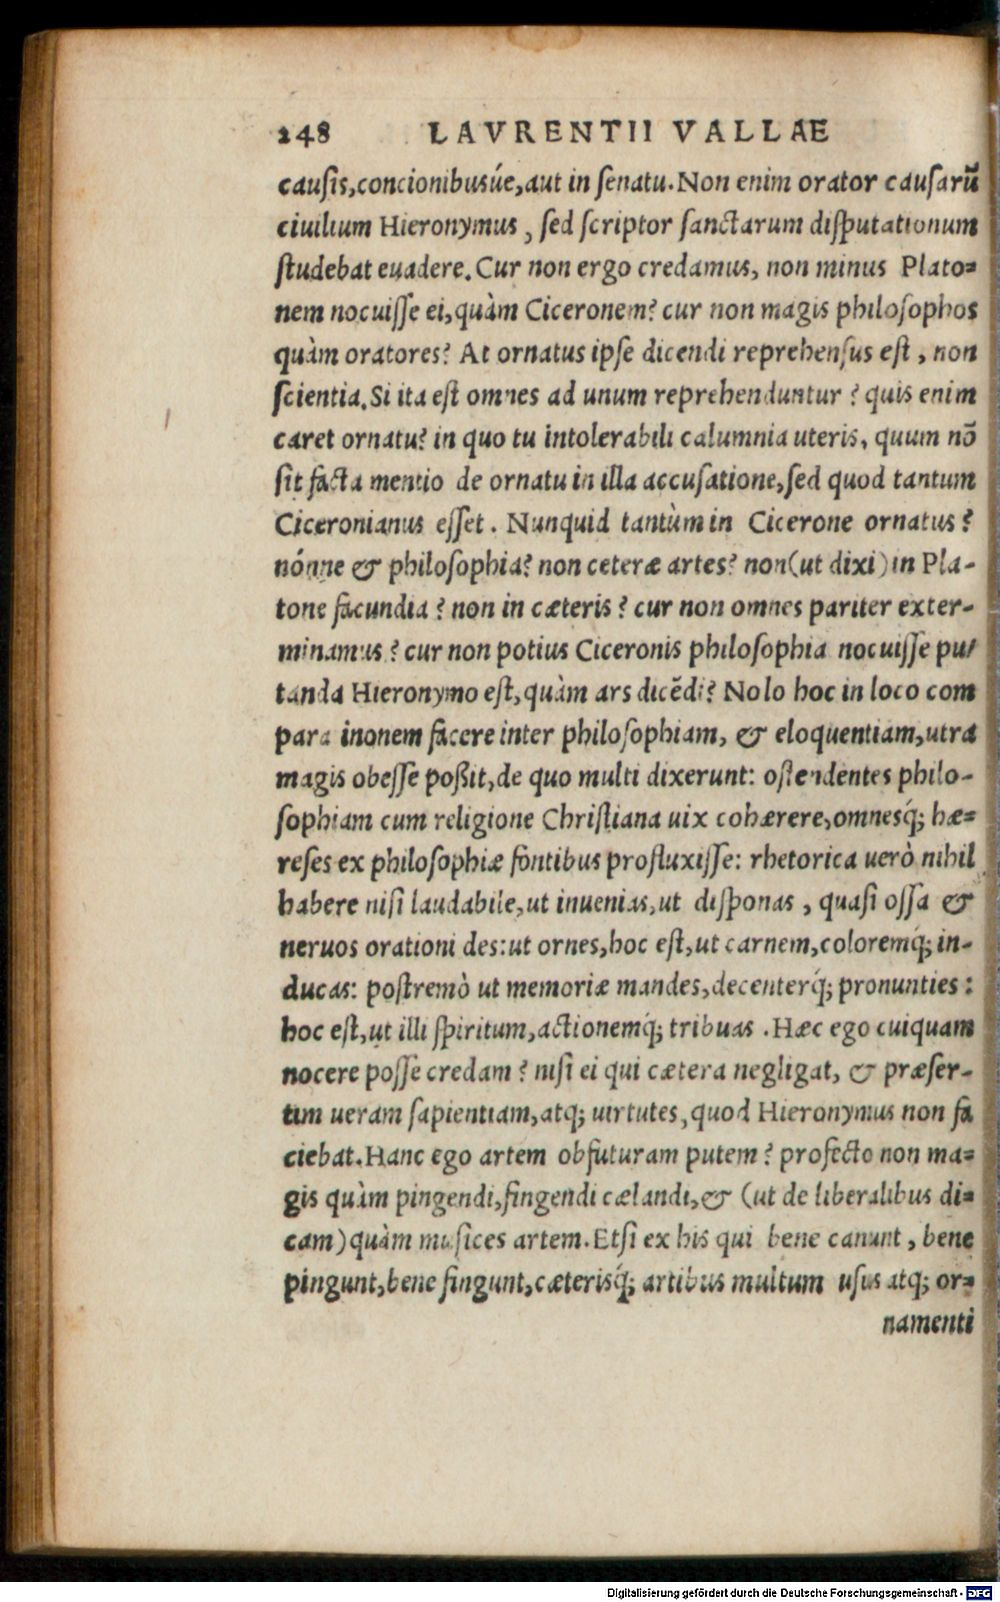 248 LAVRENTII VALLAE
causis, concionibusúe, aut in senatu. Non enim orator causarũ
ciuilium Hieronymus, sed scriptor sanctarum disputationum
studebat euadere. Cur non ergo credamus, non minus Plato=
nem nocuisse ei, quàm Ciceronem? cur non magis philosophos
quàm oratores? At ornatus ipse dicendi reprehensus est, non
scientia. Si ita est omnes ad unum reprehenduntur? quis enim
caret ornatu? in quo tu intolerabili calumnia uteris, quum nõ
sit facta mentio de ornatu in illa accusatione, sed quod tantum
Ciceronianus esset. Nunquid tantùm in Cicerone ornatus?
nónne & philosophia? non ceteræ artes? non (ut dixi) in Pla-
tone facundia? non in cæteris? cur non omnes pariter exter-
minamus? cur non potius Ciceronis philosophia nocuisse pu/
tanda Hieronymo est, quàm ars dicẽdi? Nolo hoc in loco com
parationem facere inter philosophiam, & eloquentiam, utra
magis obesse poßit, de quo multi dixerunt: ostendentes philo-
sophiam cum religione Christiana uix cohærere, omnesq́; hæ=
reses ex philosophiæ fontibus profluxisse: rhetorica uerò nihil
habere nisi laudabile, ut inuenias, ut disponas, quasi ossa &
neruos orationi des: ut ornes, hoc est, ut carnem, coloremq́; in-
ducas: postremò ut memoriæ mandes, decenterq́; pronunties:
hoc est, ut illi spiritum, actionemq́; tribuas. Hæc ego cuiquam
nocere posse credam? nisi ei qui cætera negligat, & præser-
tim ueram sapientiam, atq; uirtutes, quod Hieronymus non fa
ciebat. Hanc ego artem obfuturam putem? profecto non ma=
gis quàm pingendi, fingendi cælandi, & (ut de liberalibus di=
cam) quàm musices artem. Etsi ex his qui bene canunt, bene
pingunt, bene fingunt, cæterisq́; artibus multum usus atq; or=
namenti
Digitalisierung gefördert durch die Deutsche Forschungsgemeinschaft - DFG